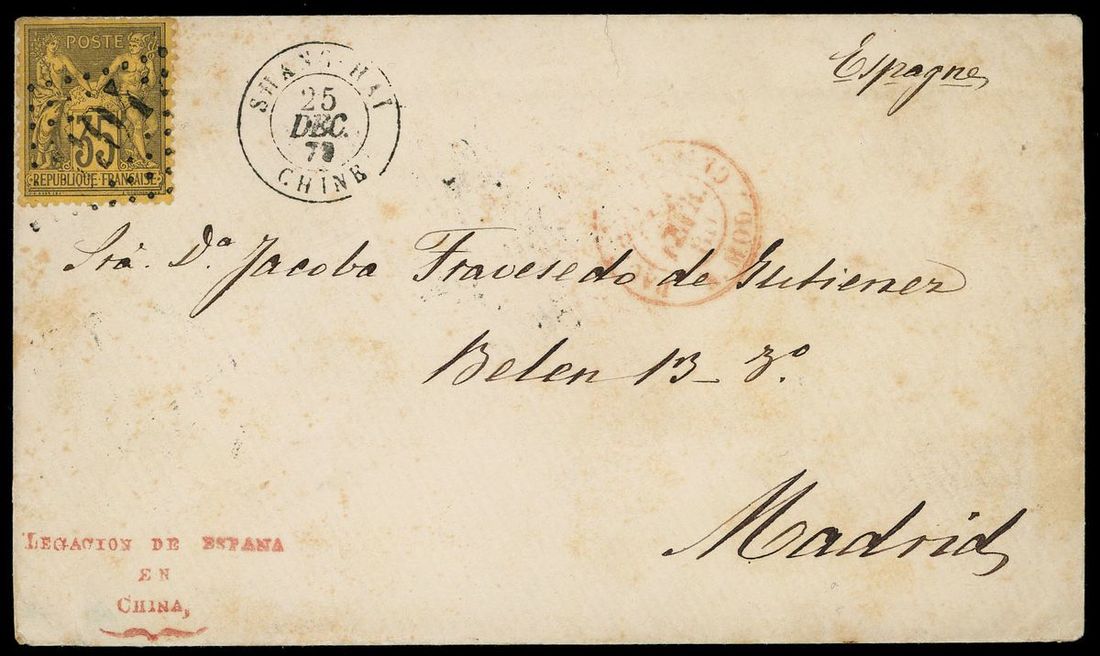 POSTE
35
REPUBLIQUE FRANÇAISE
SHANG-HAI
25
DEC.
79
CHINE
Espagne
Sra. Da. Jacoba Travesedo de Gutierrez
Belen 13_ 3º
Madrid
LEGACION DE ESPAÑA
EN
CHINA,